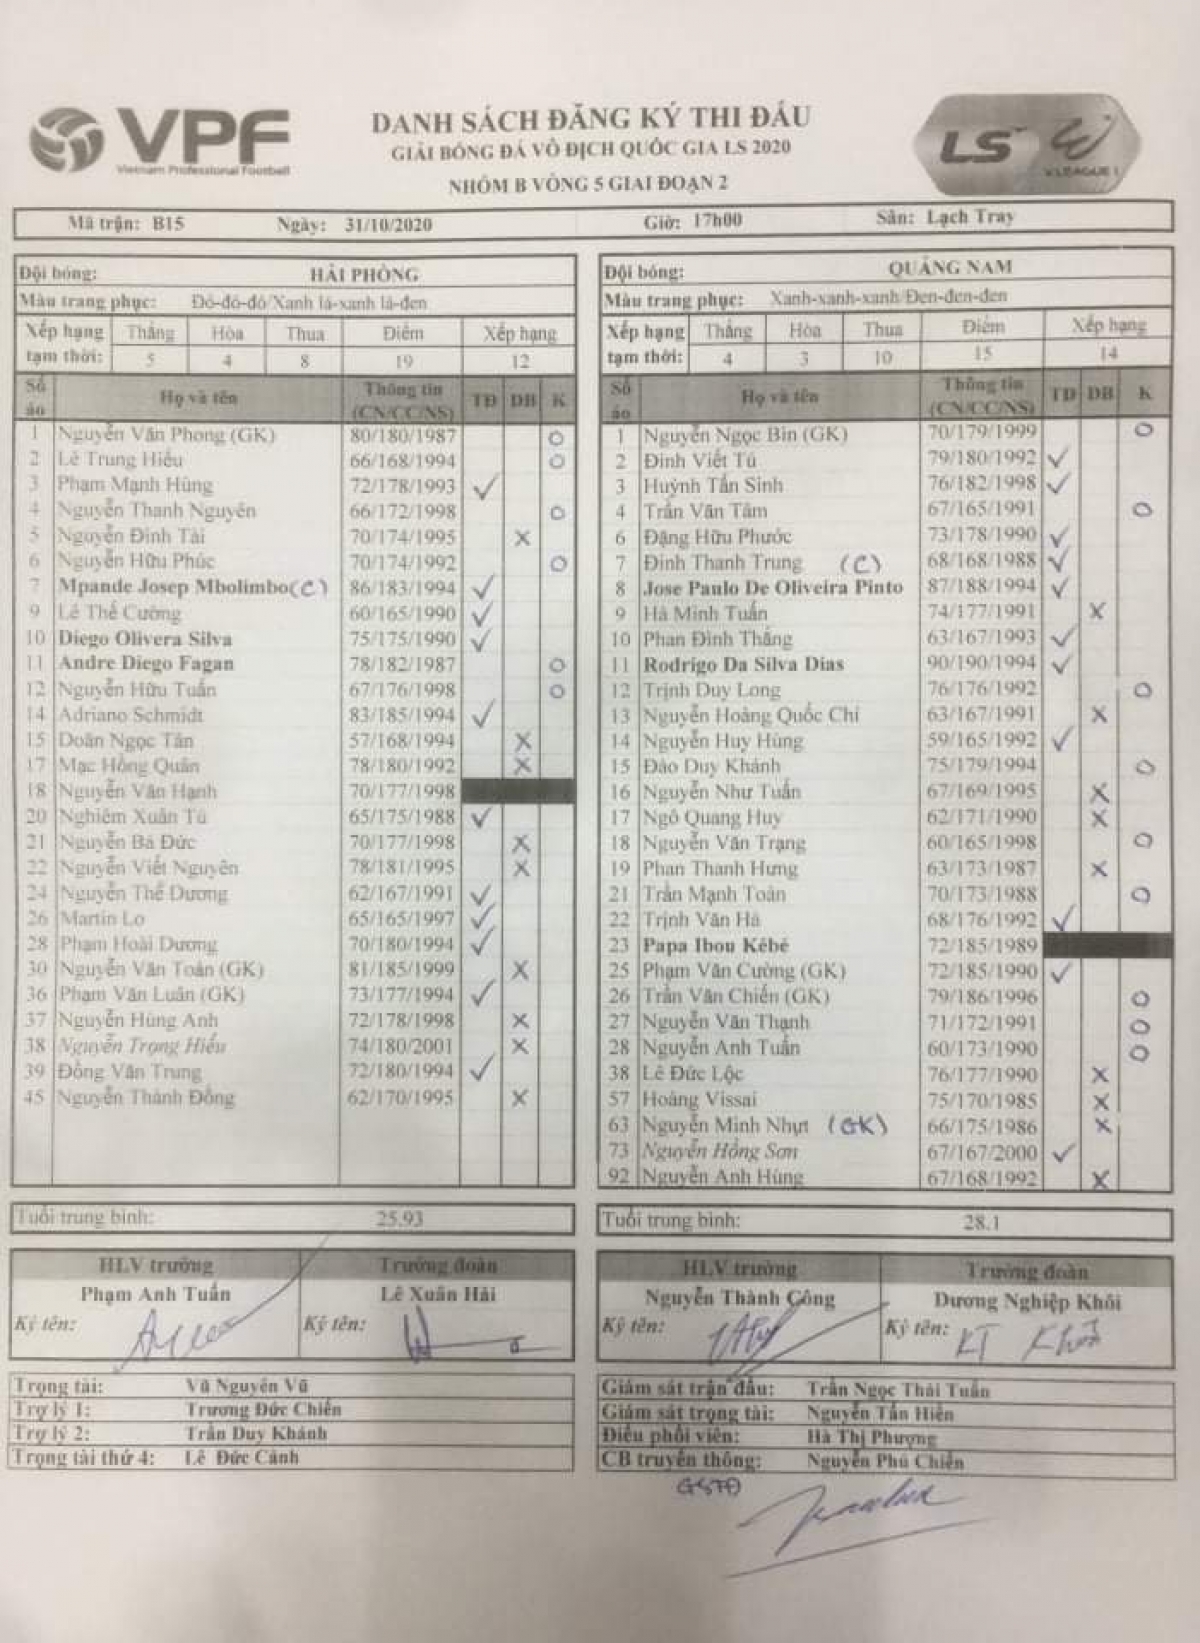 VPF
Vietnam Professional Football
DANH SÁCH ĐĂNG KÝ THI ĐẤU
GIẢI BÓNG ĐÁ VÔ ĐỊCH QUỐC GIA LS 2020
NHÓM B VÒNG 5 GIAI ĐOẠN 2
LS V.LEAGUE 1
Mã trận: B15 Ngày: 31/10/2020 Giờ: 17h00 Sân: Lạch Tray
Đội bóng: HẢI PHÒNG
Màu trang phục: Đỏ-đỏ-đỏ/Xanh lá-xanh lá-đen
Xếp hạng tạm thời: Thắng Hòa Thua Điểm Xếp hạng
5 4 8 19 12
Số áo Họ và tên Thông tin (CN/CC/NS) TĐ DB K
1 Nguyễn Văn Phong (GK) 80/180/1987 O
2 Lê Trung Hiếu 66/168/1994 O
3 Phạm Mạnh Hùng 72/178/1993 ✓
4 Nguyễn Thanh Nguyên 66/172/1998 O
5 Nguyễn Đình Tài 70/174/1995 X
6 Nguyễn Hữu Phúc 70/174/1992 O
7 Mpande Josep Mbolimbo (C) 86/183/1994 ✓
9 Lê Thế Cường 60/165/1990 ✓
10 Diego Olivera Silva 75/175/1990 ✓
11 Andre Diego Fagan 78/182/1987 O
12 Nguyễn Hữu Tuấn 67/176/1998 O
14 Adriano Schmidt 83/185/1994 ✓
15 Doãn Ngọc Tân 57/168/1994 X
17 Mạc Hồng Quân 78/180/1992 X
18 Nguyễn Văn Hạnh 70/177/1998
20 Nghiêm Xuân Tú 65/175/1988 ✓
21 Nguyễn Bá Đức 70/177/1998 X
22 Nguyễn Viết Nguyên 78/181/1995 X
24 Nguyễn Thế Dương 62/167/1991 ✓
26 Martin Lo 65/165/1997 ✓
28 Phạm Hoài Dương 70/180/1994 ✓
30 Nguyễn Văn Toản (GK) 81/185/1999 X
36 Phạm Văn Luân (GK) 73/177/1994 ✓
37 Nguyễn Hùng Anh 72/178/1998 X
38 Nguyễn Trọng Hiếu 74/180/2001 X
39 Đồng Văn Trung 72/180/1994 ✓
45 Nguyễn Thành Đồng 62/170/1995 X
Tuổi trung bình: 25.93
HLV trưởng Trưởng đoàn
Phạm Anh Tuấn Lê Xuân Hải
Ký tên: Ký tên:
Trọng tài: Vũ Nguyên Vũ
Trợ lý 1: Trương Đức Chiến
Trợ lý 2: Trần Duy Khánh
Trọng tài thứ 4: Lê Đức Cảnh
Đội bóng: QUẢNG NAM
Màu trang phục: Xanh-xanh-xanh/Đen-đen-đen
Xếp hạng tạm thời: Thắng Hòa Thua Điểm Xếp hạng
4 3 10 15 14
Số áo Họ và tên Thông tin (CN/CC/NS) TĐ DB K
1 Nguyễn Ngọc Bin (GK) 70/179/1999 O
2 Đinh Viết Tú 79/180/1992 ✓
3 Huỳnh Tấn Sinh 76/182/1998 ✓
4 Trần Văn Tâm 67/165/1991 O
6 Đặng Hữu Phước 73/178/1990 ✓
7 Đinh Thanh Trung (C) 68/168/1988 ✓
8 Jose Paulo De Oliveira Pinto 87/188/1994 ✓
9 Hà Minh Tuấn 74/177/1991 X
10 Phan Đình Thắng 63/167/1993 ✓
11 Rodrigo Da Silva Dias 90/190/1994 ✓
12 Trịnh Duy Long 76/176/1992 O
13 Nguyễn Hoàng Quốc Chí 63/167/1991 X
14 Nguyễn Huy Hùng 59/165/1992 ✓
15 Đào Duy Khánh 75/179/1994 O
16 Nguyễn Như Tuấn 67/169/1995 X
17 Ngô Quang Huy 62/171/1990 X
18 Nguyễn Văn Trạng 60/165/1998 O
19 Phan Thanh Hưng 63/173/1987 X
21 Trần Mạnh Toàn 70/173/1988 O
22 Trịnh Văn Hà 68/176/1992 ✓
23 Papa Ibou Kébé 72/185/1989
25 Phạm Văn Cường (GK) 72/185/1990 ✓
26 Trần Văn Chiến (GK) 79/186/1996 O
27 Nguyễn Văn Thạnh 71/172/1991 O
28 Nguyễn Anh Tuấn 60/173/1990 O
38 Lê Đức Lộc 76/177/1990 X
57 Hoàng Vissai 75/170/1985 X
63 Nguyễn Minh Nhựt (GK) 66/175/1986 X
73 Nguyễn Hồng Sơn 67/167/2000 ✓
92 Nguyễn Anh Hùng 67/168/1992 X
Tuổi trung bình: 28.1
HLV trưởng Trưởng đoàn
Nguyễn Thành Công Dương Nghiệp Khôi
Ký tên: Ký tên: KT Khôi
Giám sát trận đấu: Trần Ngọc Thái Tuấn
Giám sát trọng tài: Nguyễn Tấn Hiền
Điều phối viên: Hà Thị Phượng
CB truyền thông: Nguyễn Phú Chiến
GSTĐ